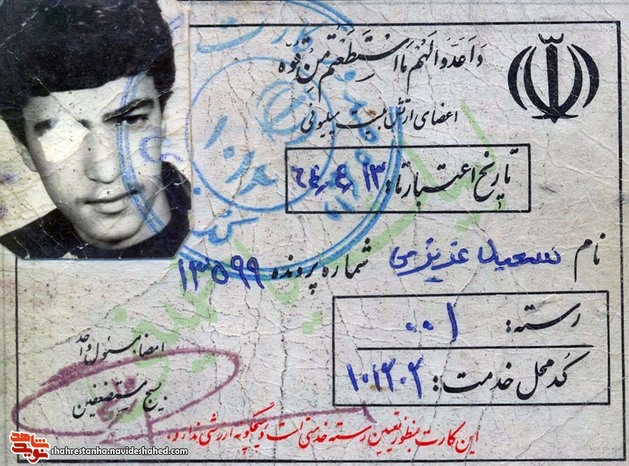 وَ اَعِدّوا لَهُم مَا اسْتَطَعْتُم مِّن قُوَّه
اعضای ارتش بیست میلیونی
تاریخ اعتبار تا: ۶۴،۴،۱۳
نام سعید عزیزی شماره پرونده ۱۳۵۹۹
رسته: ۰۰۱
کد محل خدمت: ۱۰۱۲۰۲
امضاء مسئول واحد
بسیج مستضعفین
این کارت بمنظور تعیین رسته خدمتی است و هیچگونه ارزشی ندارد.
shahrestanha.navideshahed.com